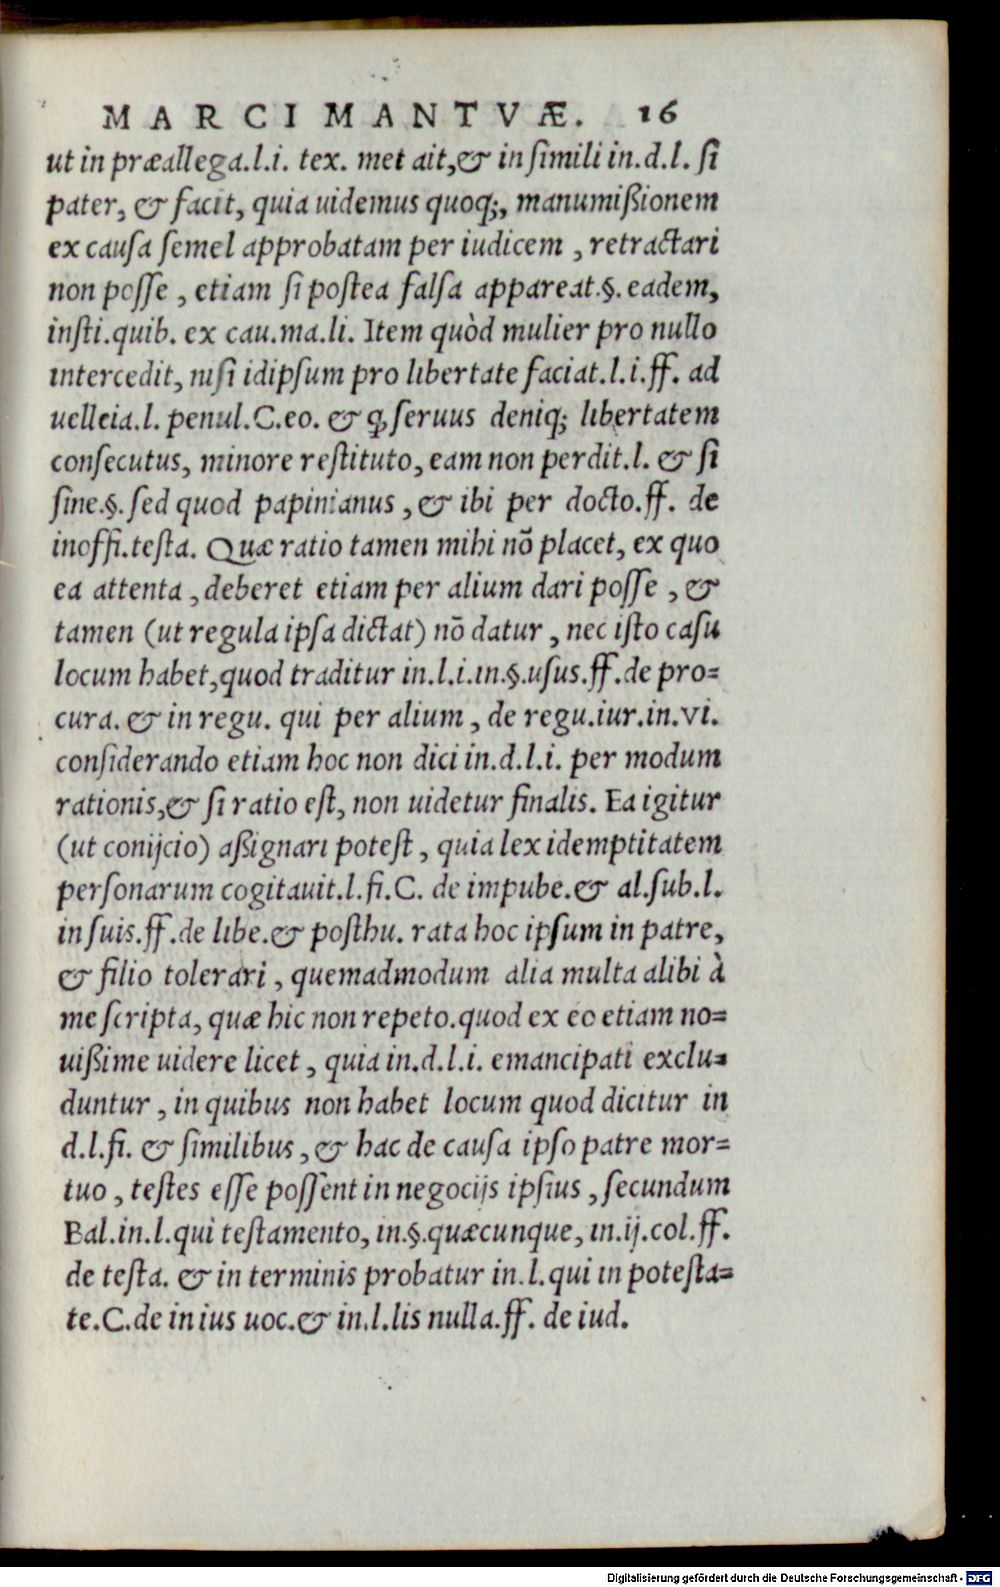 MARCI MANTVÆ. 16
ut in præallega.l.i. tex. met ait,& in simili in.d.l. si
pater, & facit, quia uidemus quoq;, manumißionem
ex causa semel approbatam per iudicem , retractari
non posse , etiam si postea falsa appareat.§. eadem,
insti.quib. ex cau.ma.li. Item quòd mulier pro nullo
intercedit, nisi idipsum pro libertate faciat.l.i.ff. ad
uelleia.l. penul.C.eo. & ꝙ seruus deniq; libertatem
consecutus, minore restituto, eam non perdit.l. & si
sine.§. sed quod papinianus , & ibi per docto.ff. de
inoffi.testa. Quæ ratio tamen mihi nō placet, ex quo
ea attenta , deberet etiam per alium dari posse , &
tamen (ut regula ipsa dictat) nō datur , nec isto casu
locum habet,quod traditur in.l.i.in.§.usus.ff.de pro=
cura. & in regu. qui per alium , de regu.iur.in.vi.
considerando etiam hoc non dici in.d.l.i. per modum
rationis,& si ratio est, non uidetur finalis. Ea igitur
(ut conijcio) aßignari potest , quia lex idemptitatem
personarum cogitauit.l.fi.C. de impube.& al.sub.l.
in suis.ff.de libe.& posthu. rata hoc ipsum in patre,
& filio tolerari , quemadmodum alia multa alibi à
me scripta, quæ hic non repeto.quod ex eo etiam no=
uißime uidere licet , quia in.d.l.i. emancipati exclu=
duntur , in quibus non habet locum quod dicitur in
d.l.fi. & similibus , & hac de causa ipso patre mor=
tuo , testes esse possent in negocijs ipsius , secundum
Bal.in.l.qui testamento, in.§.quæcunque, in.ij.col.ff.
de testa. & in terminis probatur in.l.qui in potesta=
te.C.de in ius uoc.& in.l.lis nulla.ff. de iud.
Digitalisierung gefördert durch die Deutsche Forschungsgemeinschaft - DFG